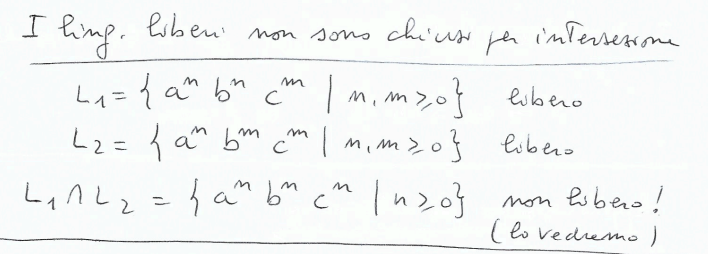 I ling. liberi non sono chiusi per intersezione
L₁ = { aⁿ bⁿ cᵐ | n, m ≥ 0 } libero
L₂ = { aⁿ bᵐ cᵐ | n, m ≥ 0 } libero
L₁ ∩ L₂ = { aⁿ bⁿ cⁿ | n ≥ 0 } non libero!
(lo vedremo)